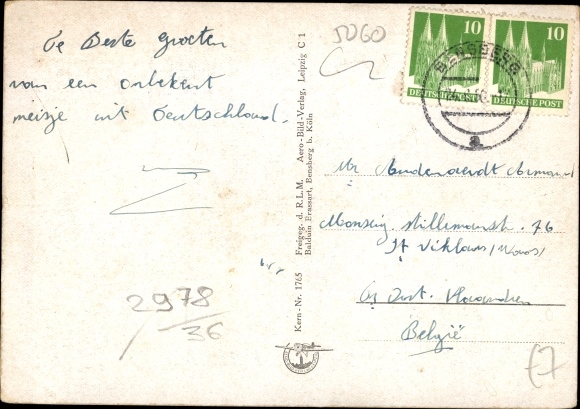 De Beste Groeten
van een onbekent
meisje uit Deutschland.
2978
36
5060
Kern-Nr. 1765 Freigeg. d. R.L.M. Aero-Bild-Verlag, Leipzig C 1
Balduin Erassart, Bensberg b. Köln
10
DEUTSCHE POST
10
DEUTSCHE POST
BENSBERG
a
Mr Armand
Monseig. Stillemanstr. 76
St Niklaas/Waas/
Oost. Vlaanderen
België